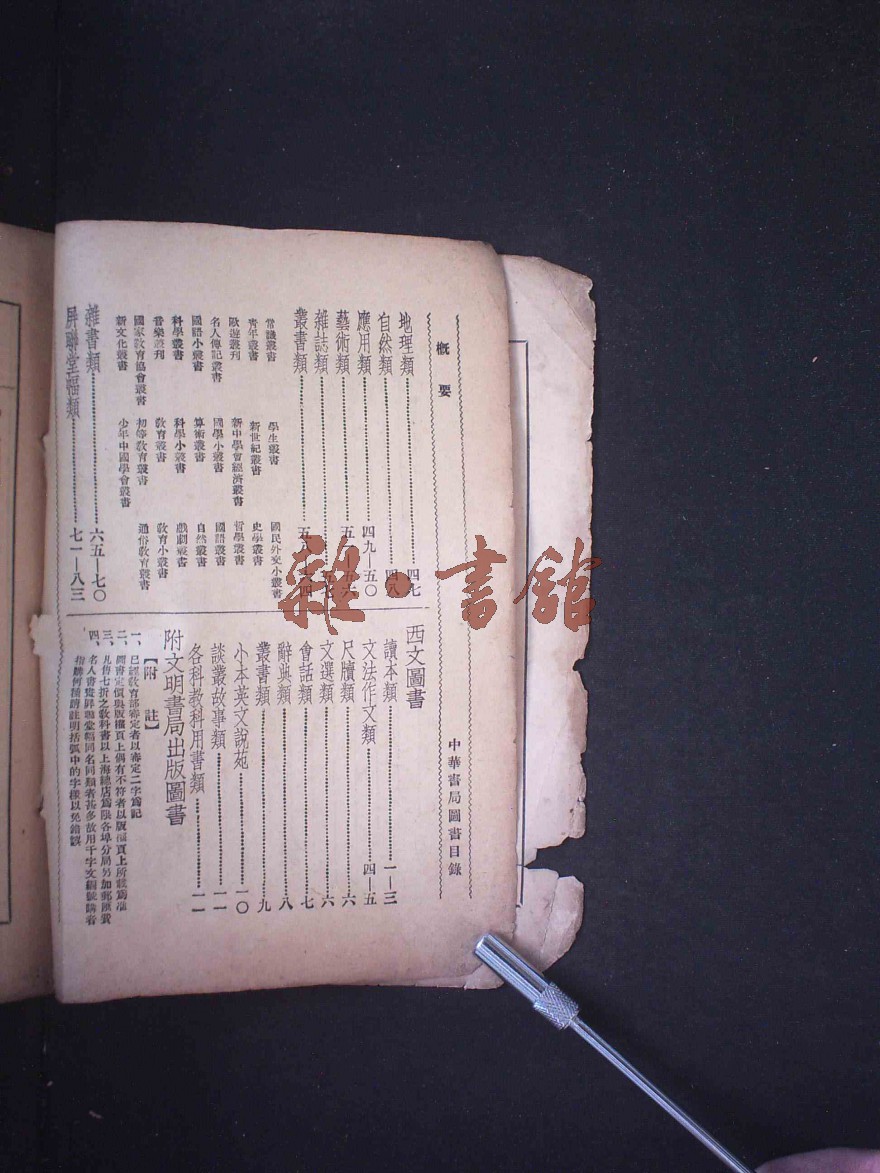 概要
中華書局圖書目錄
地理類 四七
自然類 四八
應用類 四九—五〇
藝術類
雜誌類
叢書類
常識叢書 學生叢書 國民外交小叢書
青年叢書 新世紀叢書 史學叢書
歐遊叢刊 新中學會經濟叢書 哲學叢書
名人傳記叢書 國學小叢書 國語叢書
國語小叢書 算術叢書 自然叢書
科學叢書 科學小叢書 戲劇叢書
音樂叢刊 教育叢書 教育小叢書
國家教育協會叢書 初等教育叢書 通俗教育叢書
新文化叢書 少年中國學會叢書
雜書類 六五—七〇
屏聯堂幅類 七一—八三
西文圖書
讀本類 一—三
文法作文類 四—五
尺牘類 六
文選類 六
會話類 七
辭典類 八
叢書類 九
小本英文說苑 一〇
談叢故事類 一一
各科教科用書類 一一
附文明書局出版圖書
【附註】
一、已經教育部審定者以審定二字爲記
二、圖書定價與版權頁上偶有不符者以版權頁上所載爲準
三、凡售七折之教科書以上海總店爲限各埠分局另加郵匯費
四、名人書畫屏聯堂幅同名同類者甚多故用千字文編號購者
指購何種請註明括弧中的字樣以免錯誤
雜·書館